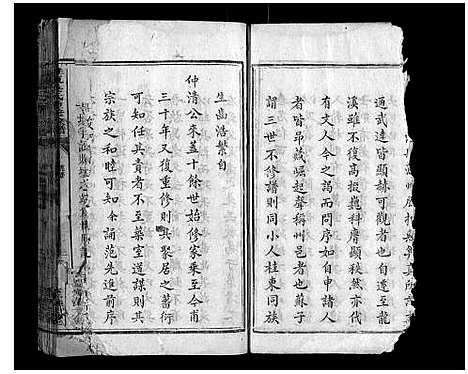 通武達皆顯赫可觀者也自遠至龍
溪雖不復高掇巍科膺顯秩然亦代
有文人今之謁而問序如自申諸人
者皆昂藏崛起聲稱州邑者也蘇子
謂三世不修譜則同小人桂東同族
生齒浩繁自
仲清公來蓋十餘世始修家乘至今甫
三十年又復重修則其聚居之蕃衍
可知任其責者不至藥室道謀則其
宗族之和睦可知余誦范先進前序